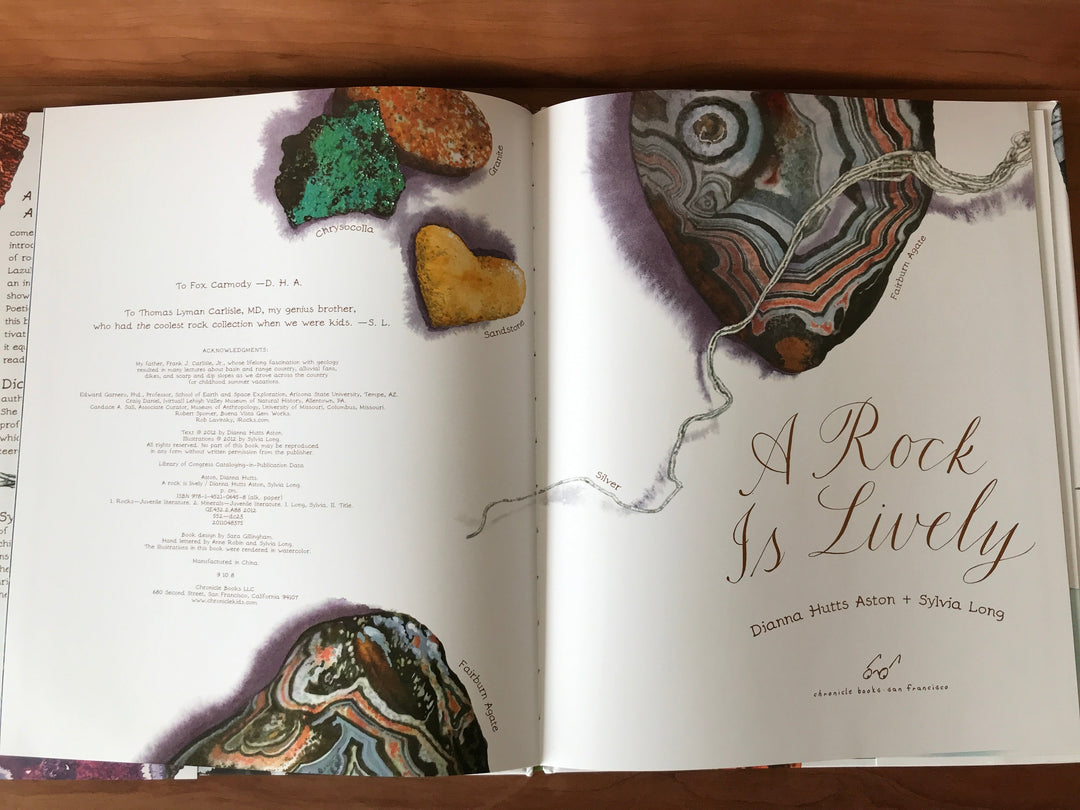 A
A
come
introd
of ro
Lazu
an in
show
Poeti
this b
tivat
it equ
read
Dic
auth
She
prof
which
teer
Sy
of
Granite
Chrysocolla
Sandstone
To Fox Carmody —D. H. A.
To Thomas Lyman Carlisle, MD, my genius brother,
who had the coolest rock collection when we were kids. —S. L.
ACKNOWLEDGMENTS:
My father, Frank J. Carlisle, Jr., whose lifelong fascination with geology
resulted in many lectures about basin and range country, alluvial fans,
dikes, and scarp and dip slopes as we drove across the country
for childhood summer vacations.
Edward Garnero, Phd., Professor, School of Earth and Space Exploration, Arizona State University, Tempe, AZ.
Craig Daniel, (virtual) Lehigh Valley Museum of Natural History, Allentown, PA.
Candace A. Sall, Associate Curator, Museum of Anthropology, University of Missouri, Columbus, Missouri.
Robert Spomer, Buena Vista Gem Works.
Rob Lavinsky, iRocks.com.
Text © 2012 by Dianna Hutts Aston.
Illustrations © 2012 by Sylvia Long.
All rights reserved. No part of this book may be reproduced
in any form without written permission from the publisher.
Library of Congress Cataloging-in-Publication Data:
Aston, Dianna Hutts.
A rock is lively / Dianna Hutts Aston, Sylvia Long.
p. cm.
ISBN 978-1-4521-0645-8 (alk. paper)
1. Rocks—Juvenile literature. 2. Minerals—Juvenile literature. I. Long, Sylvia. II. Title.
QE432.2.A88 2012
552—dc23
2011048375
Book design by Sara Gillingham.
Hand lettered by Anne Robin and Sylvia Long.
The illustrations in this book were rendered in watercolor.
Manufactured in China.
9 10 8
Chronicle Books LLC
680 Second Street, San Francisco, California 94107
www.chroniclekids.com
Fairburn Agate
Fairburn Agate
Silver
A Rock
Is Lively
Dianna Hutts Aston + Sylvia Long
chronicle books san francisco